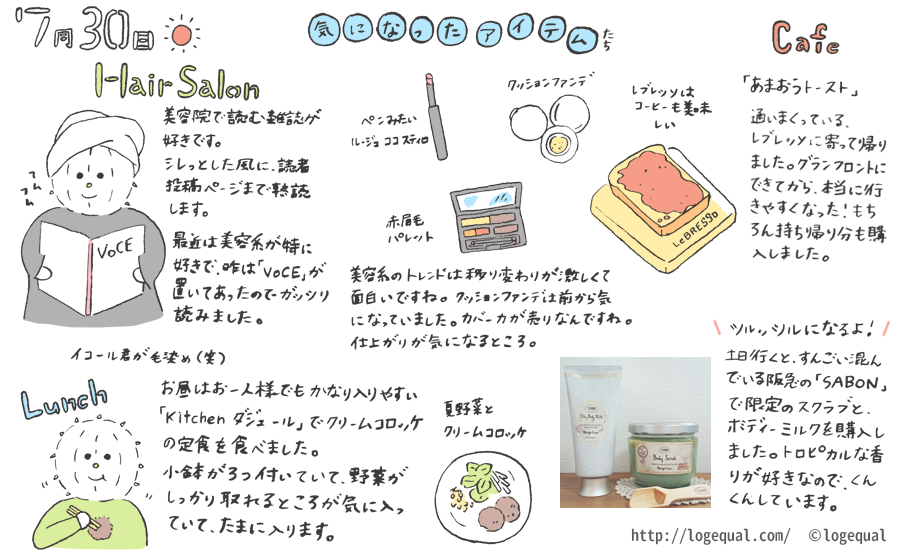 7月30日
Hair Salon
美容院で読む雑誌が
好きです。
シレっとした風に、読者
投稿ページまで熟読
します。
最近は美容系が特に
好きで、昨は「VoCE」が
置いてあったのでガッツリ
読みました。
フムフム
VoCE
イコール君が毛染め(笑)
気になったアイテムたち
ペンみたい
ルージュ ココ スティロ
クッションファンデ
赤眉毛
パレット
美容系のトレンドは移り変わりが激しくて
面白いですね。クッションファンデは前から気
になっていました。カバー力が売りなんですね。
仕上がりが気になるところ。
Cafe
レブレッソは
コーヒーも美味
しい
LeBRESSO
「あまおうトースト」
通いまくっている、
レブレッソに寄って帰り
ました。グランフロントに
できてから、本当に行
きやすくなった!もち
ろん持ち帰り分も購
入しました。
Lunch
お昼はお一人様でもかなり入りやすい
「Kitchen ダジュール」でクリームコロッケ
の定食を食べました。
小鉢が3つ付いていて、野菜が
しっかり取れるところが気に入っ
ていて、たまに入ります。
夏野菜と
クリームコロッケ
\ ツルッツルになるよ! /
土日行くと、すんごい混ん
でいる阪急の「SABON」
で限定のスクラブと、
ボディーミルクを購入し
ました。トロピカルな香
りが好きなので、くん
くんしています。
Body Scrub
http://logequal.com/ ©logequal